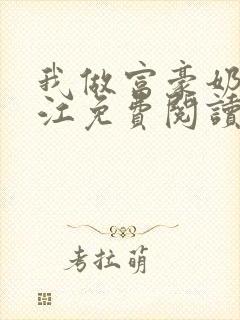 我做富豪奶
江免費閱讀
考拉萌